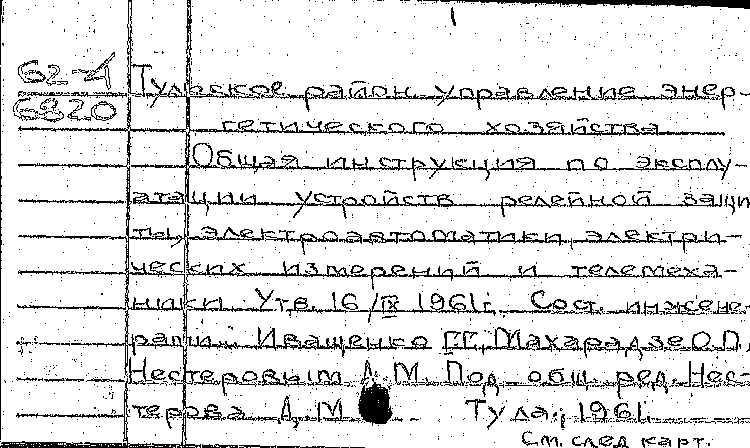 62-4 Тульское район. управление энер-
6820 гетического хозяйства
Общая инструкция по эксплу-
атации устройств релейной защи
ты, электроавтоматики, электри-
ческих измерений и телемеха-
ники. Утв. 16/IX 1961г. Сост. инжене-
рами: Иващенко Г.Г., Махарадзе О.П.,
Нестеровым Д.М. Под общ. ред. Нес-
терова Д.М. Тула, 1961.
См. след карт.